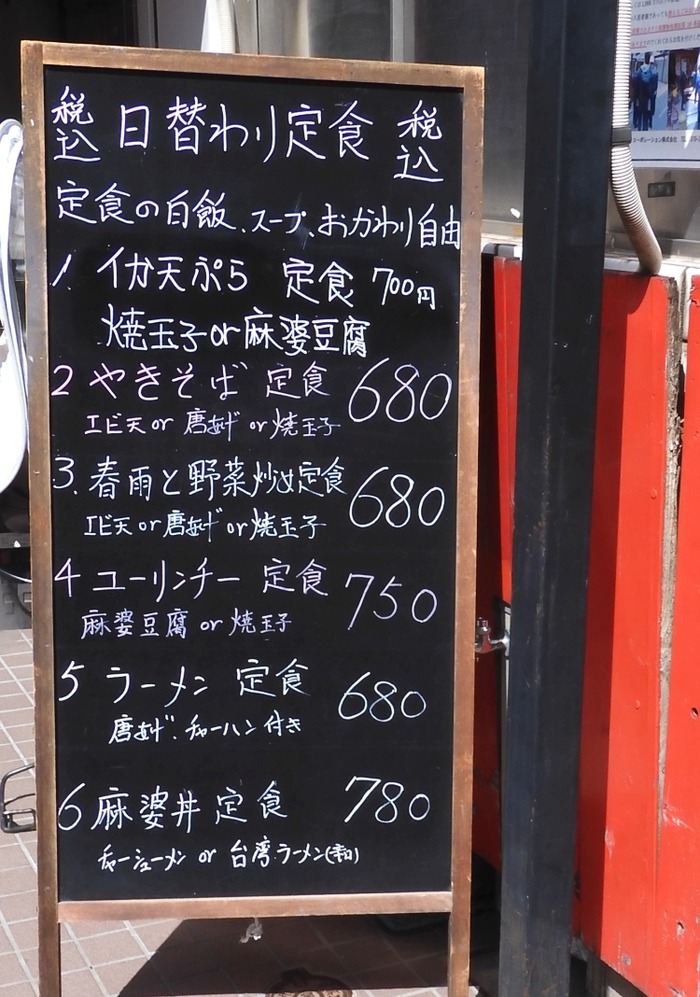 税込 日替わり定食 税込
定食の白飯、スープ、おかわり自由
1. イカ天ぷら 定食 700円
焼玉子or麻婆豆腐
2 やきそば 定食 680
エビ天or 唐あげ or焼玉子
3. 春雨と野菜炒め定食 680
エビ天or唐あげ or焼玉子
4 ユーリンチー 定食 750
麻婆豆腐 or 焼玉子
5 ラーメン 定食 680
唐あげ.チャーハン付き
6 麻婆丼 定食 780
チャーシューメン or 台湾ラーメン